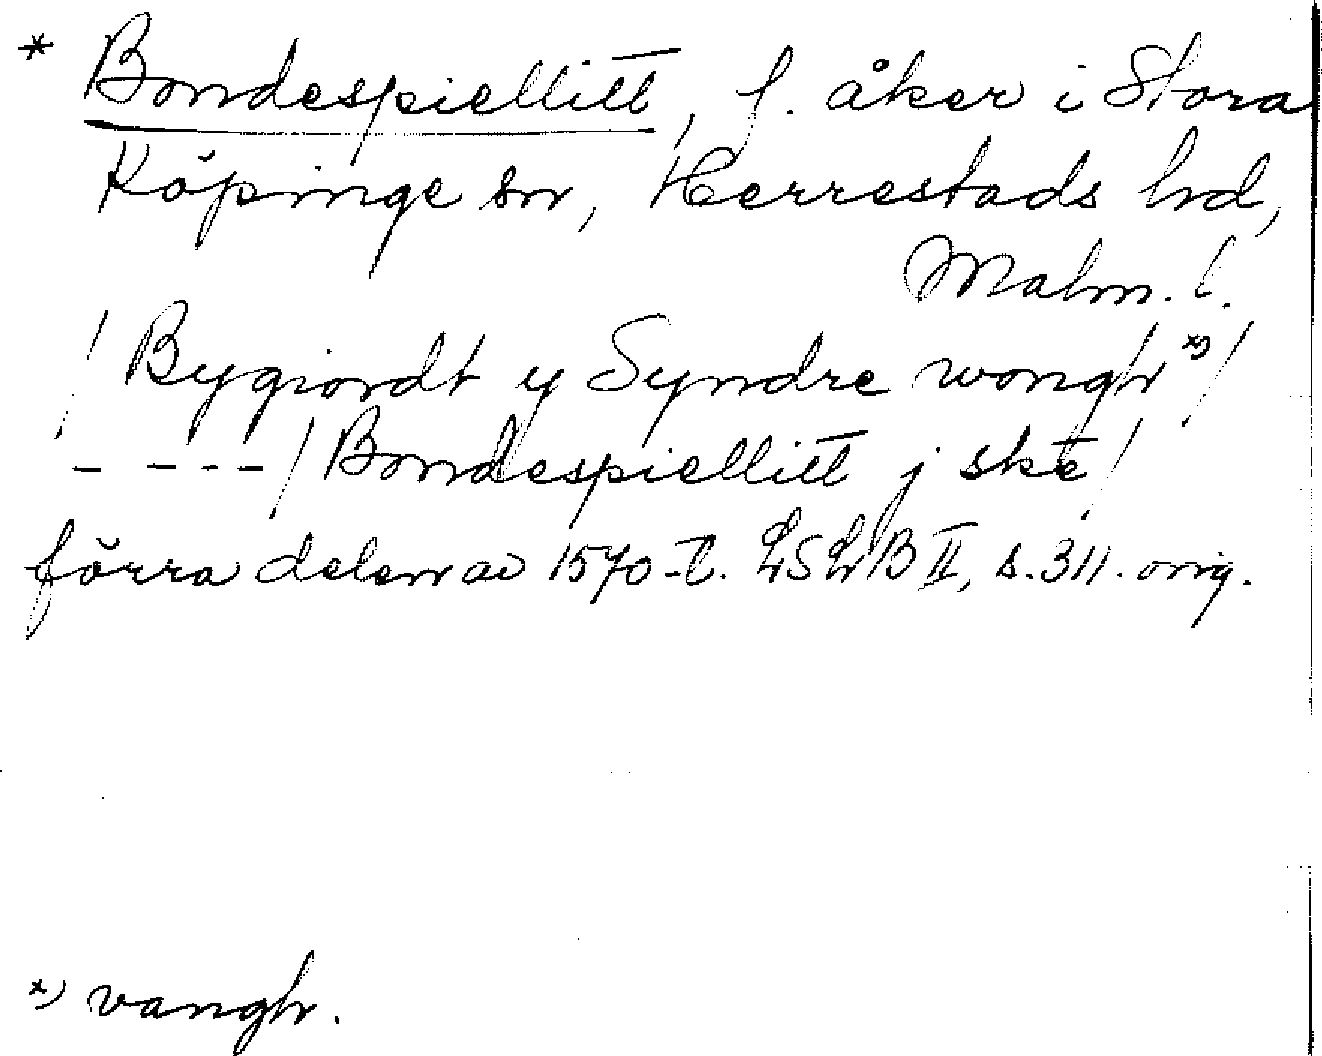 * Bondespiellitt, f. åker i Stora
Köpinge sn, Herrestads hd,
Malm. l.
/ Bygiordt y Syndre wongh *) /
- - - - / Bondespiellitt j ske /
förra delen av 1570-t. LSLB II, s. 311. orig.
*) vangh.